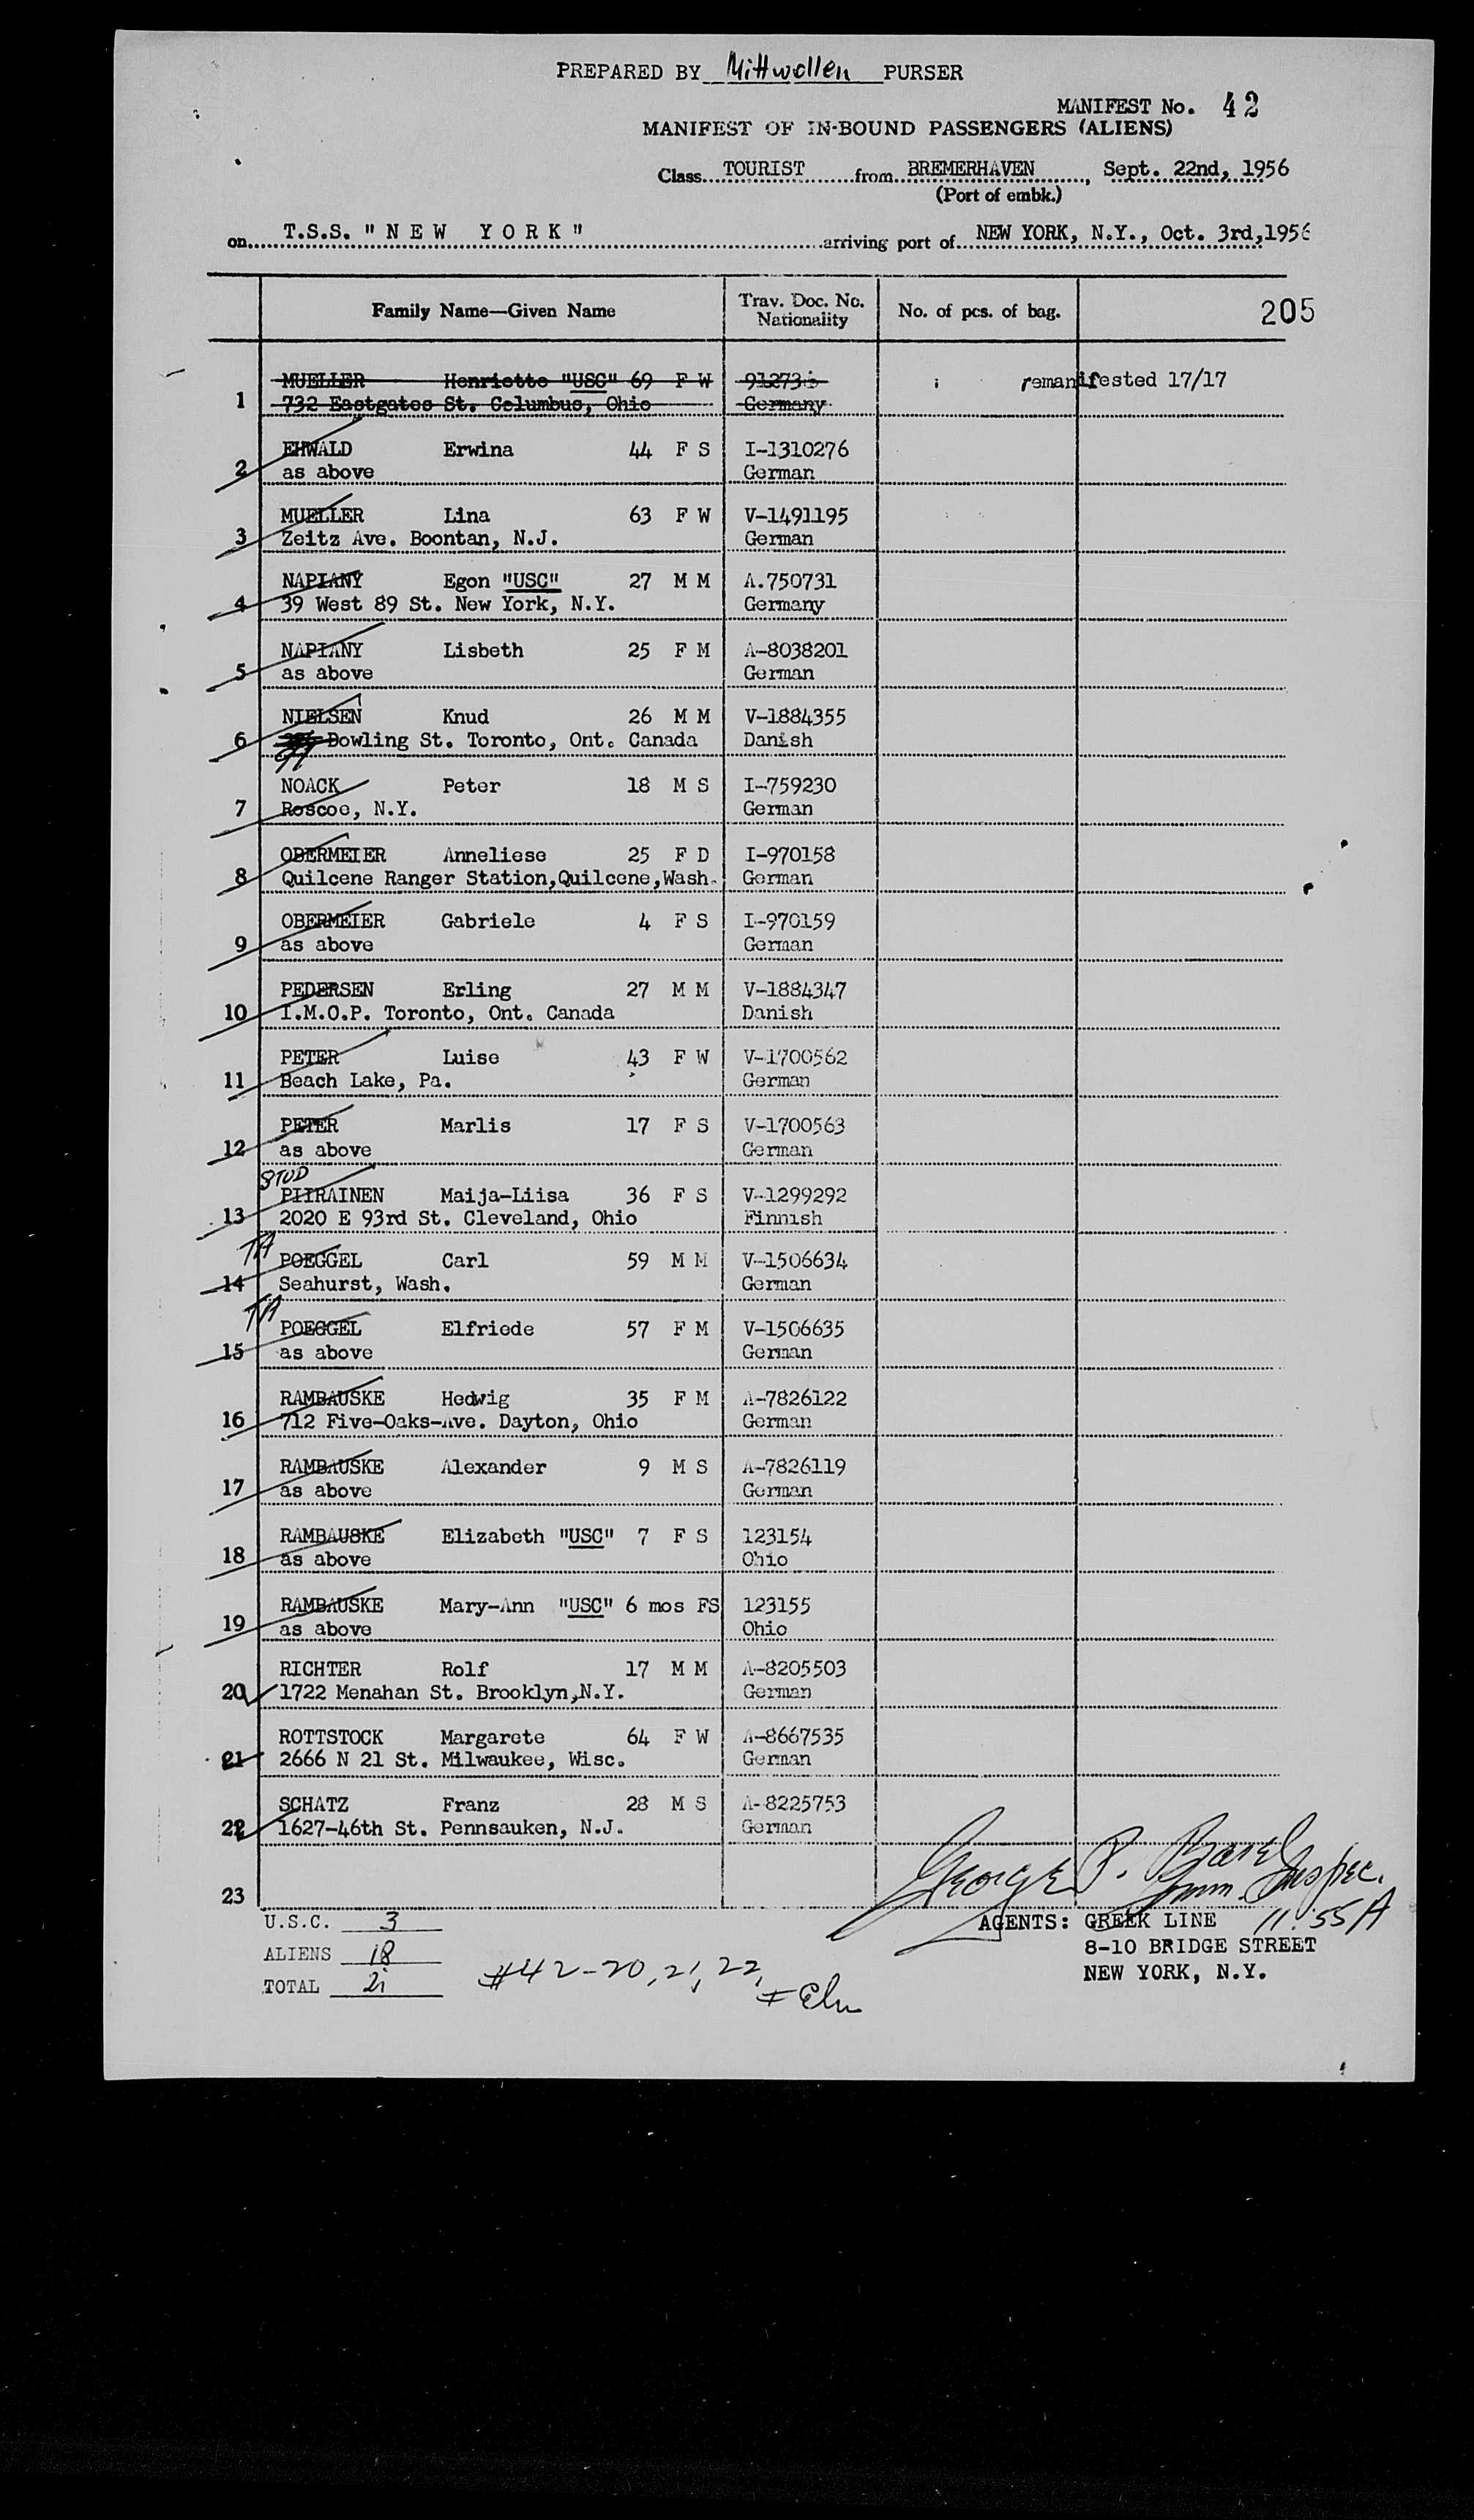 PREPARED BY Mittwollen PURSER
MANIFEST No. 42
MANIFEST OF IN-BOUND PASSENGERS (ALIENS)
Class TOURIST from BREMERHAVEN, Sept. 22nd, 1956
(Port of embk.)
on T.S.S. "NEW YORK" arriving port of NEW YORK, N.Y., Oct. 3rd, 1956
Family Name—Given Name Trav. Doc. No. Nationality No. of pcs. of bag. 205
1 MUELLER Henriette "USC" 69 F W remanifested 17/17
732 Eastgates St. Columbus, Ohio Germany
2 EHWALD Erwina 44 F S I-1310276
as above German
3 MUELLER Lina 63 F W V-1491195
Zeitz Ave. Boontan, N.J. German
4 NAPIANY Egon "USC" 27 M M A.750731
39 West 89 St. New York, N.Y. Germany
5 NAPIANY Lisbeth 25 F M A-8038201
as above German
6 NIELSEN Knud 26 M M V-1884355
Dowling St. Toronto, Ont. Canada Danish
7 NOACK Peter 18 M S I-759230
Roscoe, N.Y. German
8 OBERMEIER Anneliese 25 F D I-970158
Quilcene Ranger Station,Quilcene,Wash. German
9 OBERMEIER Gabriele 4 F S I-970159
as above German
10 PEDERSEN Erling 27 M M V-1884347
I.M.O.P. Toronto, Ont. Canada Danish
11 PETER Luise 43 F W V-1700562
Beach Lake, Pa. German
12 PETER Marlis 17 F S V-1700563
as above German
STUD
13 PIIRAINEN Maija-Liisa 36 F S V-1299292
2020 E 93rd St. Cleveland, Ohio Finnish
TA
14 POEGGEL Carl 59 M M V-1506634
Seahurst, Wash. German
TA
15 POEGGEL Elfriede 57 F M V-1506635
as above German
16 RAMBAUSKE Hedwig 35 F M A-7826122
712 Five-Oaks-Ave. Dayton, Ohio German
17 RAMBAUSKE Alexander 9 M S A-7826119
as above German
18 RAMBAUSKE Elizabeth "USC" 7 F S 123154
as above Ohio
19 RAMBAUSKE Mary-Ann "USC" 6 mos FS 123155
as above Ohio
20 RICHTER Rolf 17 M M A-8205503
1722 Menahan St. Brooklyn,N.Y. German
21 ROTTSTOCK Margarete 64 F W A-8667535
2666 N 21 St. Milwaukee, Wisc. German
22 SCHATZ Franz 28 M S A-8225753
1627-46th St. Pennsauken, N.J. German
23
George P.
Imm. Inspec.
U.S.C. 3
ALIENS 18
TOTAL 21
#42-20, 21, 22,
AGENTS: GREEK LINE 11:55A
8-10 BRIDGE STREET
NEW YORK, N.Y.